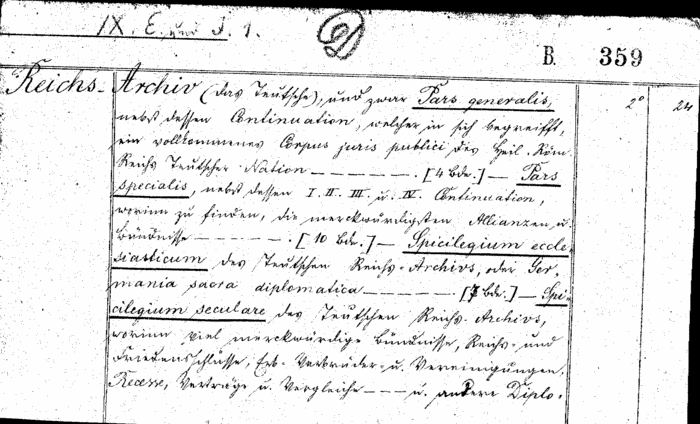 IX. E. und J. 1.
B. 359
Reichs- Archiv (das Teutsche), und zwar Pars generalis, 2° 24
nebst dessen Continuation, welcher in sich begreifft,
ein vollkommenes Corpus juris publici des Heil. Röm.
Reichs Teutscher Nation — — — . [4 Bde.] — Pars
specialis, nebst dessen I. II. III. u. IV. Continuation,
worinn zu finden, die merckwürdigsten Allianzen u.
Bündnisse — — — . [10 Bde.] — Spicilegium eccle-
siasticum des Teutschen Reichs-Archivs, oder Ger-
mania sacra diplomatica — — — [7 Bde.] — Spi-
cilegium seculare des Teutschen Reichs-Archivs,
worinn viel merckwürdige Bündnisse, Reichs- und
Friedensschlüsse, Erb-Verbrüder- u. Vereinigungen,
Recesse, Verträge u. Vergleiche — — — u. andere Diplo-